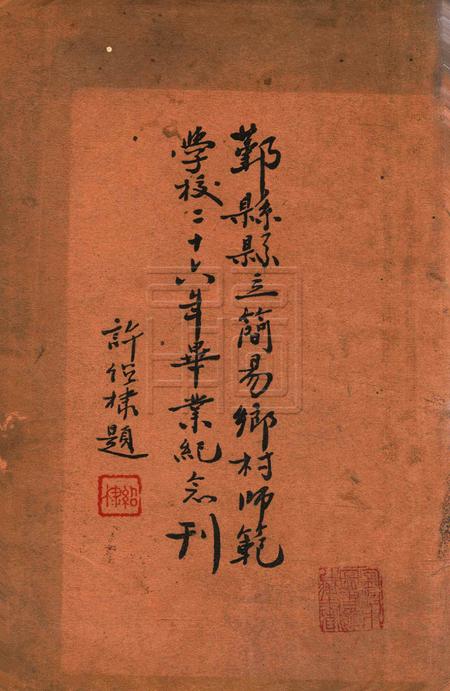 鄞縣縣立簡易鄉村師範
學校二十六年畢業紀念刊
許紹棣題
紹棣